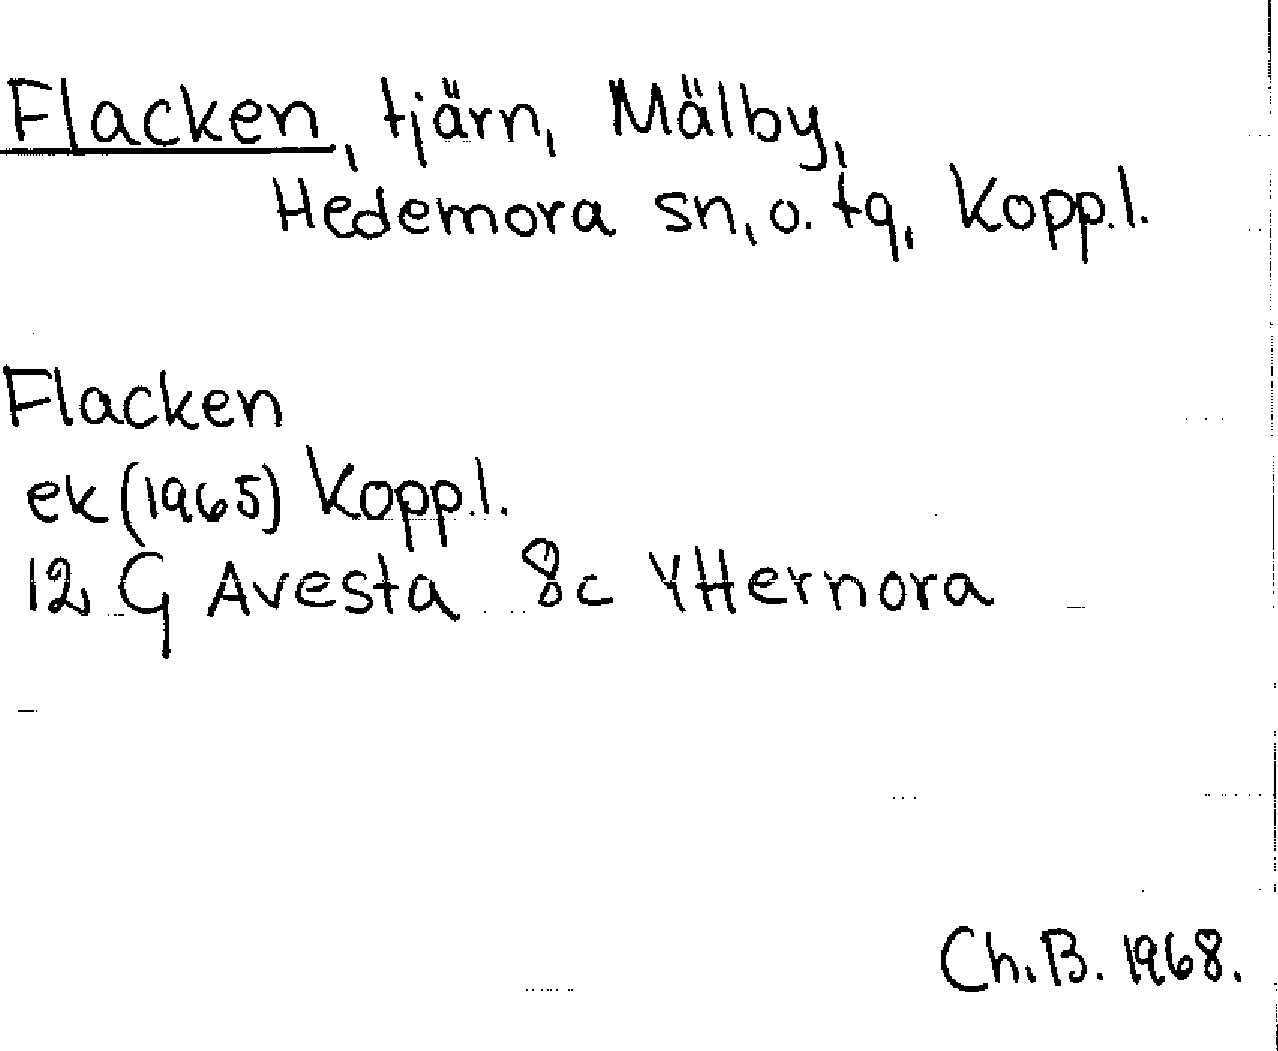 Flacken, tjärn, Mälby,
Hedemora sn, o. tg, Kopp.l.
Flacken
ek (1965) Kopp.l.
12 G Avesta 8c Ytternora
Ch.B. 1968.